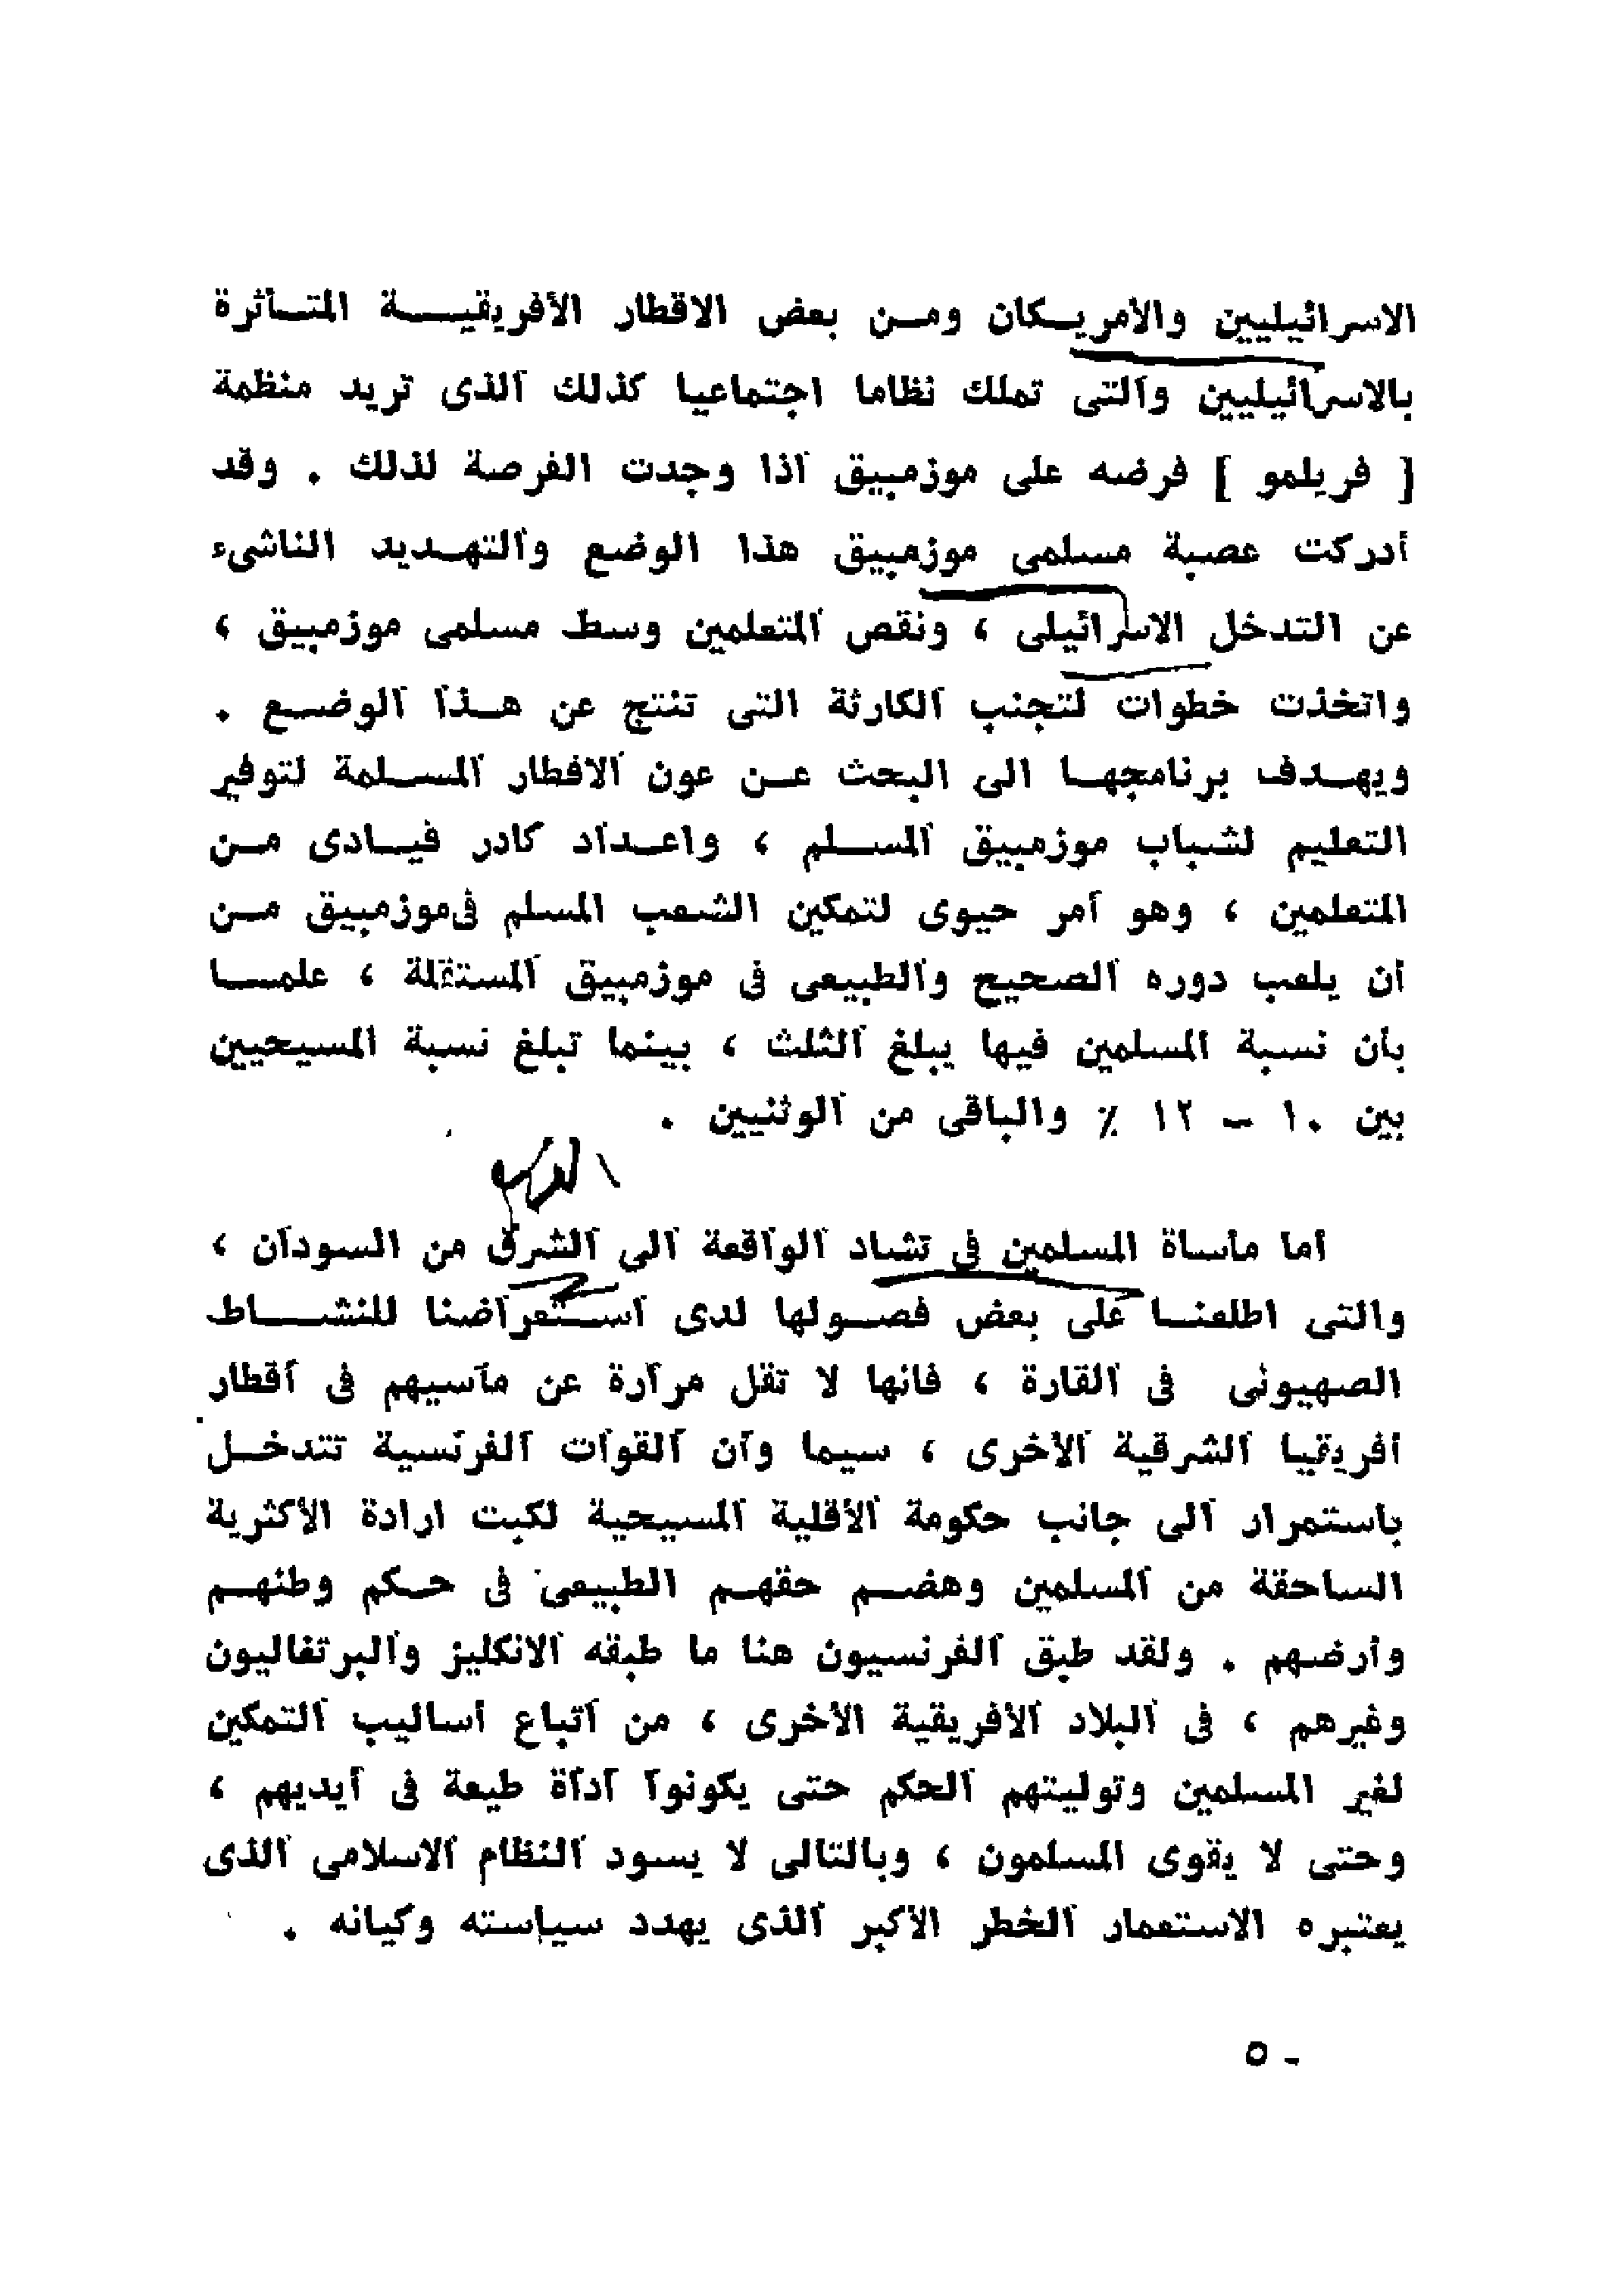 الاسرائيليين والأمريكان ومن بعض الاقطار الأفريقية المتأثرة
بالاسرائيليين والتى تملك نظاما اجتماعيا كذلك الذى تريد منظمة
[ فريلمو ] فرضه على موزمبيق اذا وجدت الفرصة لذلك . وقد
أدركت عصبة مسلمى موزمبيق هذا الوضع والتهديد الناشىء
عن التدخل الاسرائيلى ، ونقص المتعلمين وسط مسلمى موزمبيق ،
واتخذت خطوات لتجنب الكارثة التى تنتج عن هذا الوضع .
ويهدف برنامجها الى البحث عن عون الاقطار المسلمة لتوفير
التعليم لشباب موزمبيق المسلم ، واعداد كادر قيادى من
المتعلمين ، وهو أمر حيوى لتمكين الشعب المسلم فى موزمبيق من
أن يلعب دوره الصحيح والطبيعى فى موزمبيق المستقلة ، علما
بأن نسبة المسلمين فيها يبلغ الثلث ، بينما تبلغ نسبة المسيحيين
بين ١٠ - ١٢ ٪ والباقى من الوثنيين .
أما مأساة المسلمين فى تشاد الواقعة الى الشرق من السودان ،
والتى اطلعنا على بعض فصولها لدى استعراضنا للنشاط
الصهيونى فى القارة ، فانها لا تقل مرارة عن مآسيهم فى أقطار
أفريقيا الشرقية الأخرى ، سيما وأن القوات الفرنسية تتدخل
باستمرار الى جانب حكومة الأقلية المسيحية لكبت ارادة الأكثرية
الساحقة من المسلمين وهضم حقهم الطبيعى فى حكم وطنهم
وأرضهم . ولقد طبق الفرنسيون هنا ما طبقه الانكليز والبرتغاليون
وغيرهم ، فى البلاد الافريقية الأخرى ، من اتباع أساليب التمكين
لغير المسلمين وتوليتهم الحكم حتى يكونوا أداة طيعة فى أيديهم ،
وحتى لا يقوى المسلمون ، وبالتالى لا يسود النظام الاسلامى الذى
يعتبره الاستعمار الخطر الأكبر الذى يهدد سياسته وكيانه .
٥ -